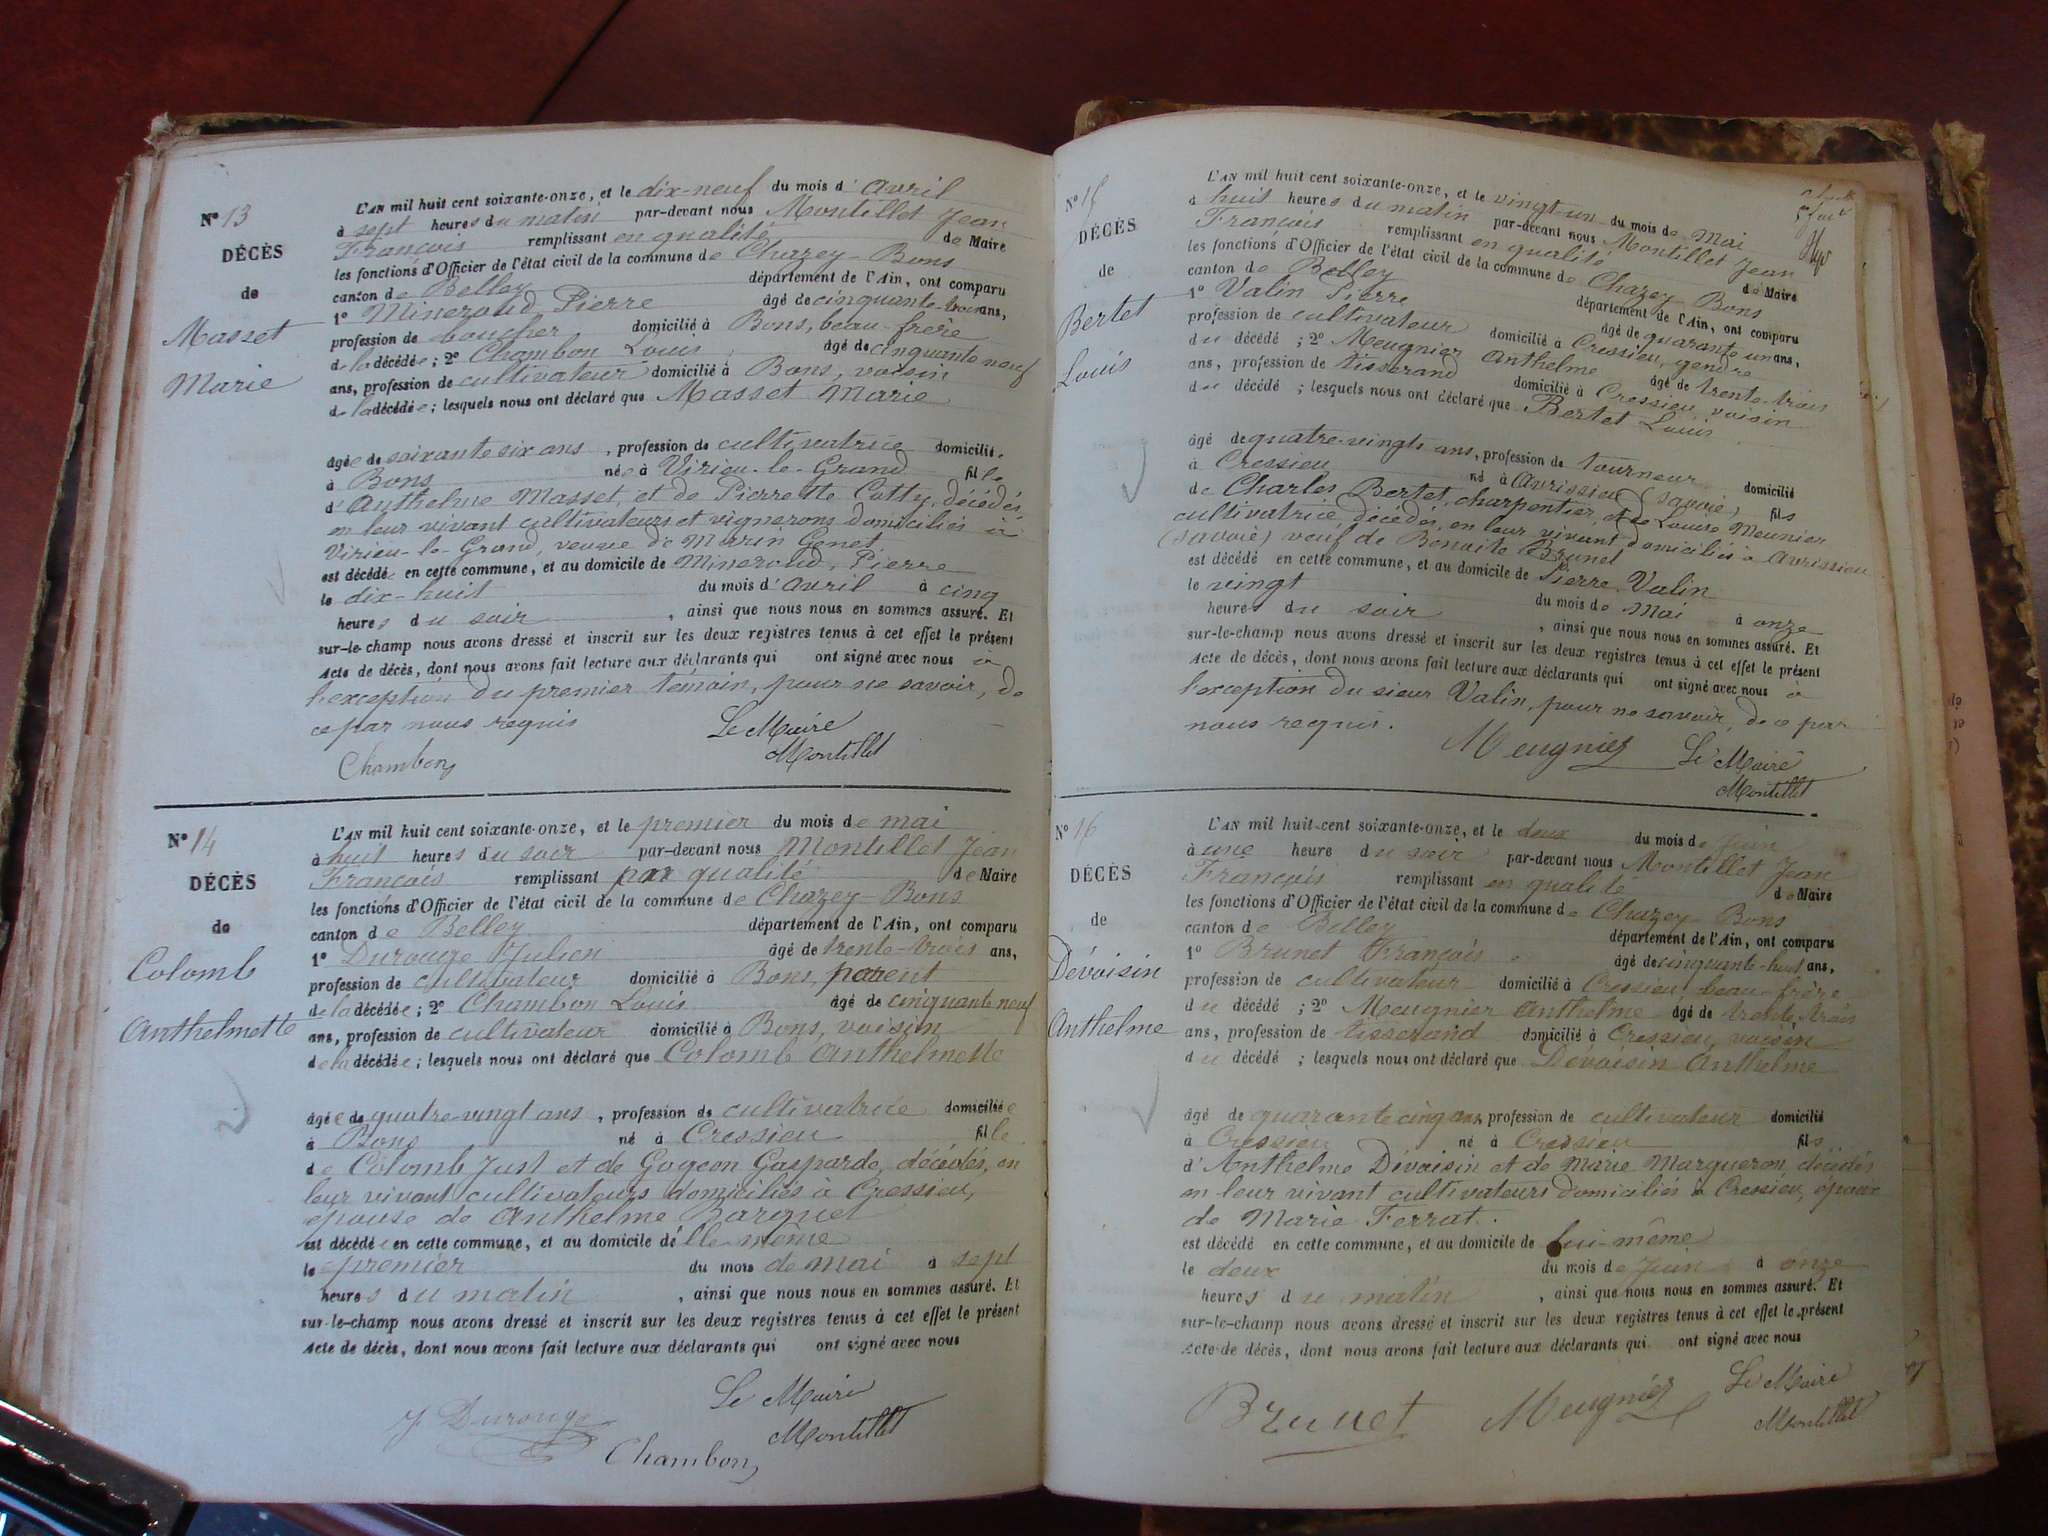 N° 13
DÉCÈS
de
Masset
Marie
L'AN mil huit cent soixante-onze, et le dix-neuf du mois d'Avril
à sept heures du matin par-devant nous Montillet Jean
François remplissant en qualité de Maire
les fonctions d'Officier de l'état civil de la commune de Chazey-Bons
canton de Belley département de l'Ain, ont comparu
1° Mineraud Pierre âgé de cinquante-trois ans,
profession de boucher domicilié à Bons, beau-frère
de la décédée ; 2° Chambon Louis âgé de cinquante neuf
ans, profession de cultivateur domicilié à Bons, voisin
de la décédée ; lesquels nous ont déclaré que Masset Marie
âgée de soixante six ans, profession de cultivatrice domicilié
à Bons née à Virieu-le-Grand fille
d'Anthelme Masset, et de Pierrette Cotty, décédés,
en leur vivant cultivateurs et vignerons domiciliés à
Virieu-le-Grand, veuve de Genet
est décédé en cette commune, et au domicile de Mineraud, Pierre
le dix-huit du mois d'avril à cinq
heures du soir, ainsi que nous nous en sommes assuré. Et
sur-le-champ nous avons dressé et inscrit sur les deux registres tenus à cet effet le présent
Acte de décès, dont nous avons fait lecture aux déclarants qui ont signé avec nous à
l'exception du premier témoin, pour ne savoir, de
ce par nous requis
Le Maire
Chambon Montillet
N° 14
DÉCÈS
de
Colomb
Anthelmette
L'AN mil huit cent soixante-onze, et le premier du mois de mai
à huit heures du soir par-devant nous Montillet Jean
François remplissant par qualité de Maire
les fonctions d'Officier de l'état civil de la commune de Chazey-Bons
canton de Belley département de l'Ain, ont comparu
1° Durouge Julien âgé de trente-trois ans,
profession de cultivateur domicilié à Bons, parent
de la décédée ; 2° Chambon Louis âgé de cinquante neuf
ans, profession de cultivateur domicilié à Bons, voisin
de la décédée ; lesquels nous ont déclaré que Colomb Anthelmette
âgée de quatre-vingt ans, profession de cultivatrice domiciliée
à Bons né à Cressieu fille
de Colomb Just et de Gojeon Gasparde, décédés, en
leur vivant cultivateurs domiciliés à Cressieu,
épouse de Anthelme Barquet
est décédée en cette commune, et au domicile d'elle-même
le premier du mois de mai à sept
heures du matin, ainsi que nous nous en sommes assuré. Et
sur-le-champ nous avons dressé et inscrit sur les deux registres tenus à cet effet le présent
Acte de décès, dont nous avons fait lecture aux déclarants qui ont signé avec nous
Le Maire
J Durouge Montillet
Chambon
N° 15
DÉCÈS
de
Bertet
Louis
L'AN mil huit cent soixante-onze, et le vingt-un du mois de Mai
à huit heures du matin par-devant nous Montillet Jean
François remplissant en qualité de Maire
les fonctions d'Officier de l'état civil de la commune de Chazey-Bons
canton de Belley département de l'Ain, ont comparu
1° Valin Pierre âgé de quarante un ans,
profession de cultivateur domicilié à Cressieu, gendre
du décédé ; 2° Meugnier Anthelme âgé de trente-trois
ans, profession de tisserand domicilié à Cressieu, voisin
du décédé ; lesquels nous ont déclaré que Bertet Louis
âgé de quatre-vingts ans, profession de tourneur domicilié
à Cressieu né à Avrissieu (Savoie) fils
de Charles Bertet, charpentier, et de Louise Meunier
cultivatrice, décédés, en leur vivant domiciliés à Avrissieu
(Savoie) veuf de Benoite Brunet
est décédé en cette commune, et au domicile de Pierre Valin
le vingt du mois de Mai à onze
heures du soir, ainsi que nous nous en sommes assuré. Et
sur-le-champ nous avons dressé et inscrit sur les deux registres tenus à cet effet le présent
Acte de décès, dont nous avons fait lecture aux déclarants qui ont signé avec nous à
l'exception du sieur Valin, pour ne savoir, de ce par
nous requis.
Meugnier Le Maire
Montillet
N° 16
DÉCÈS
de
Dévoisin
Anthelme
L'AN mil huit cent soixante-onze, et le deux du mois de Juin
à une heure du soir par-devant nous Montillet Jean
François remplissant en qualité de Maire
les fonctions d'Officier de l'état civil de la commune de Chazey-Bons
canton de Belley département de l'Ain, ont comparu
1° Brunet François âgé de cinquante-huit ans,
profession de cultivateur domicilié à Cressieu, beau-frère
du décédé ; 2° Meugnier Anthelme âgé de trente-trois
ans, profession de tisserand domicilié à Cressieu, voisin
du décédé ; lesquels nous ont déclaré que Dévoisin Anthelme
âgé de quarante cinq ans profession de cultivateur domicilié
à Cressieu né à Cressieu fils
d'Anthelme Dévoisin et de Marie Margueron, décédés
en leur vivant cultivateurs domiciliés à Cressieu, époux
de Marie Ferrat.
est décédé en cette commune, et au domicile de lui-même
le deux du mois de Juin à onze
heures du matin, ainsi que nous nous en sommes assuré. Et
sur-le-champ nous avons dressé et inscrit sur les deux registres tenus à cet effet le présent
Acte de décès, dont nous avons fait lecture aux déclarants qui ont signé avec nous
Brunet Meugnier Le Maire
Montillet